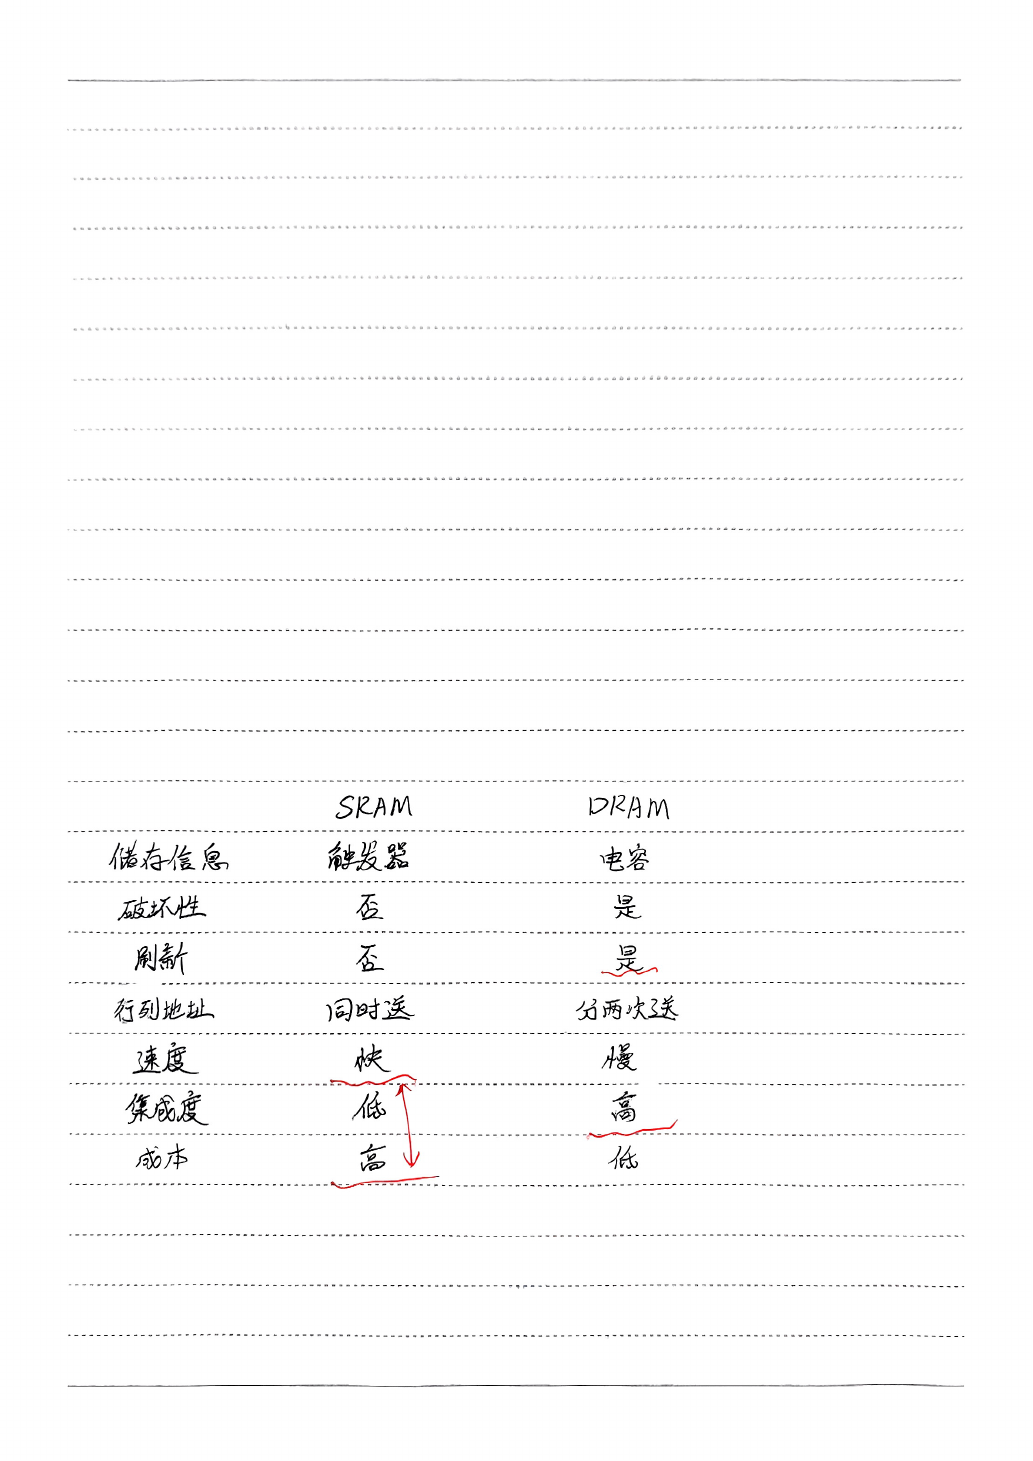 SRAM DRAM
储存信息 触发器 电容
破坏性 否 是
刷新 否 是
行列地址 同时送 分两次送
速度 快 慢
集成度 低 高
成本 高 低